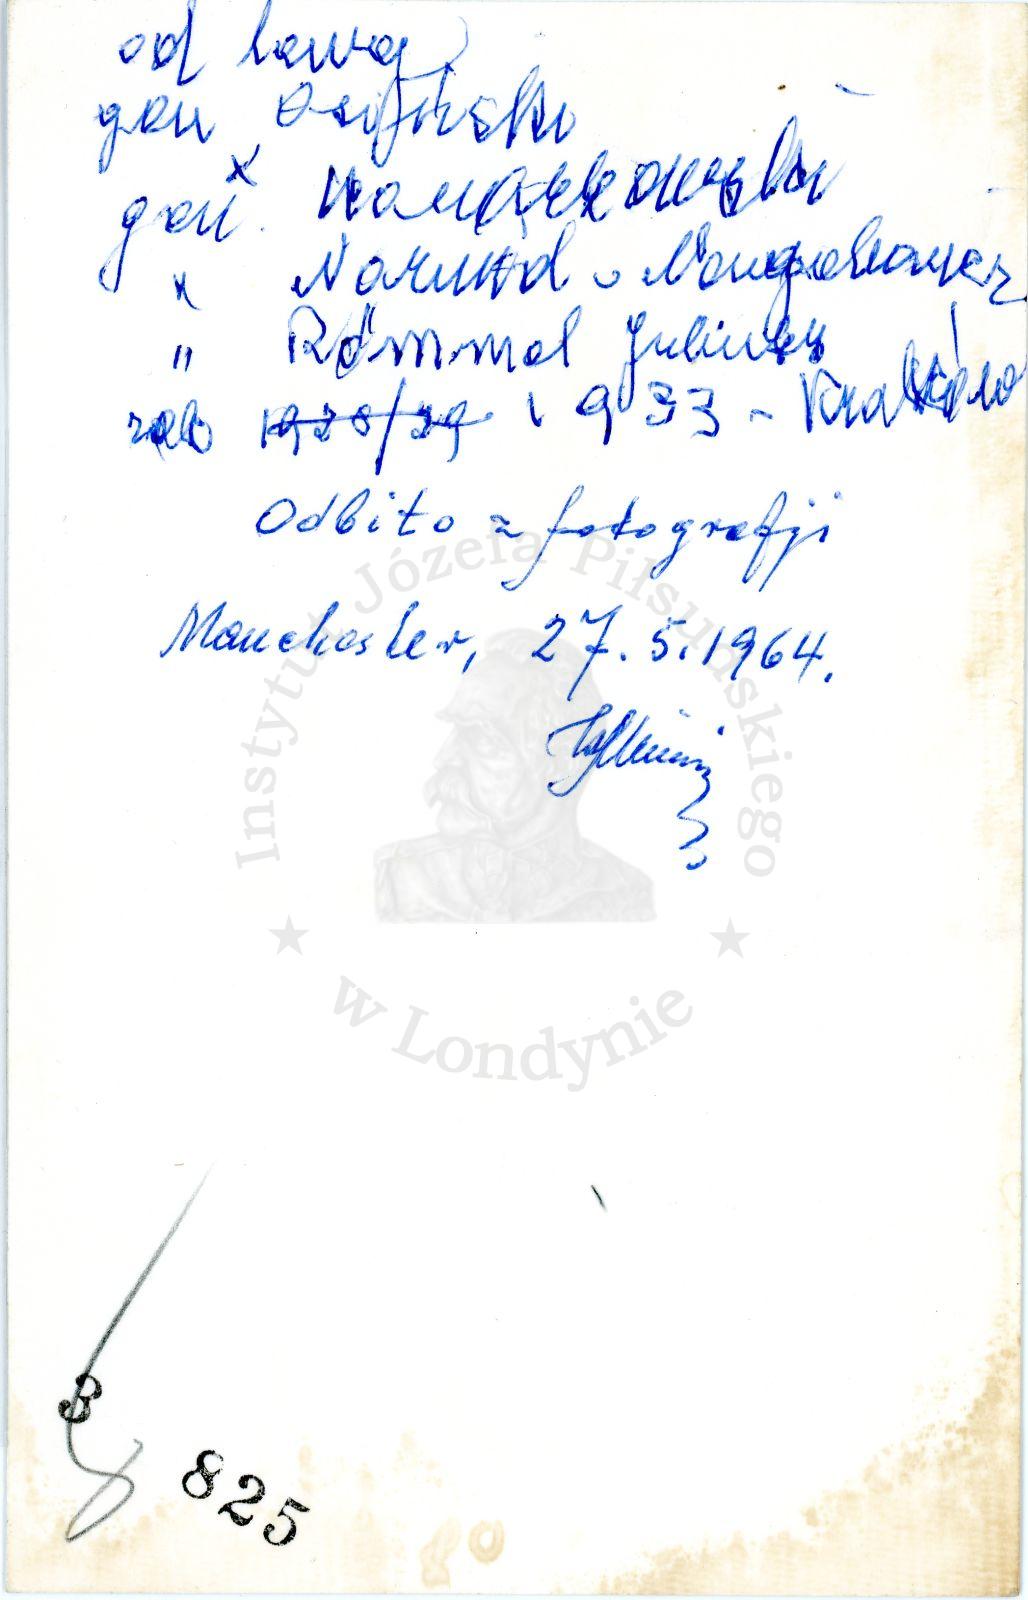 od lewej
gen Osiński
gen. Wonarkowski
" Narwid - Neugebauer
" Römmel Juliusz
rok 1928/29 1933 - Kraków
Odbito z fotografji
Manchester, 27.5.1964.
Instytut Józefa Piłsudskiego
w Londynie
3
825